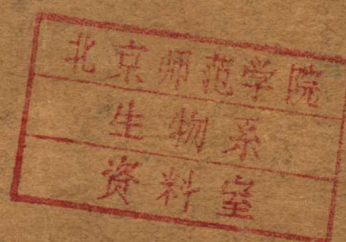 北京师范学院
生物系
资料室